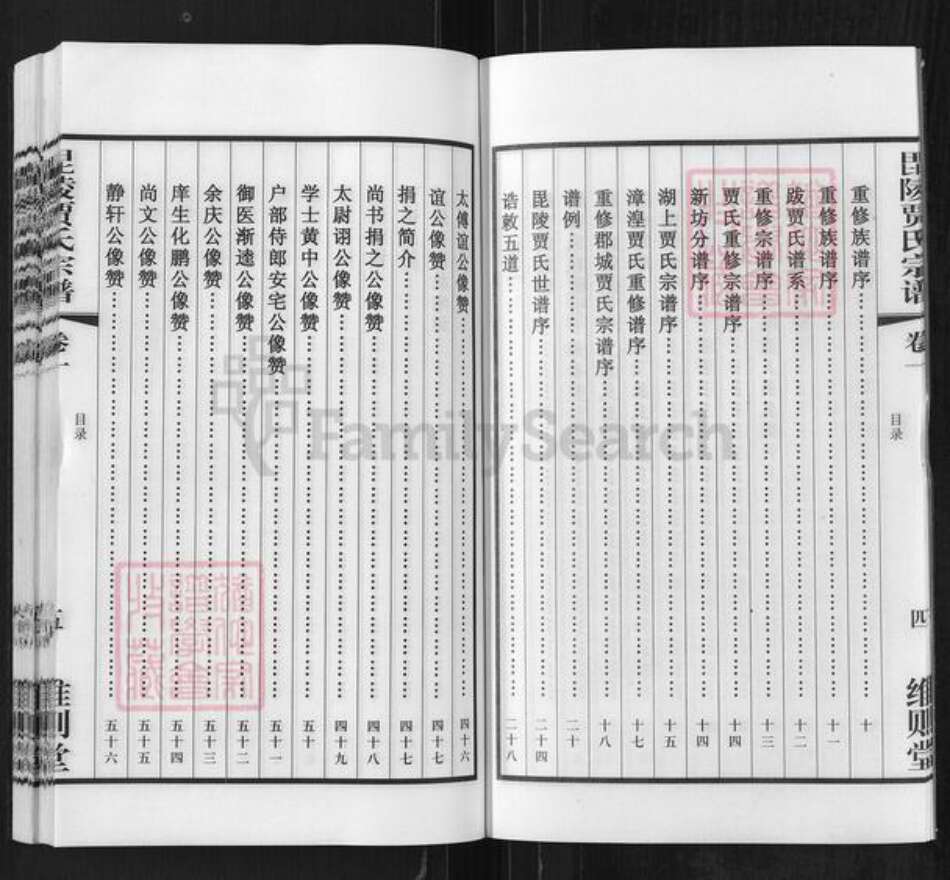 毗陵贾氏宗谱
卷一
目录
四
维则堂
重修族谱序……十
重修族谱序……十一
跋贾氏谱系……十二
重修宗谱序……十三
贾氏重修宗谱序……十四
新坊分谱序……十四
湖上贾氏宗谱序……十五
漳湟贾氏重修谱序……十七
重修郡城贾氏宗谱序……十八
谱例……二十
毘陵贾氏世谱序……二十四
诰敕五道……二十八
太傅谊公像赞……四十六
谊公像赞……四十七
捐之简介……四十七
尚书捐之公像赞……四十八
太尉诩公像赞……四十九
学士黄中公像赞……五十
户部侍郎安宅公像赞……五十一
御医渐逵公像赞……五十二
余庆公像赞……五十三
庠生化鹏公像赞……五十四
尚文公像赞……五十五
静轩公像赞……五十六
毗陵贾氏宗谱
卷一
目录
五
维则堂
FamilySearch